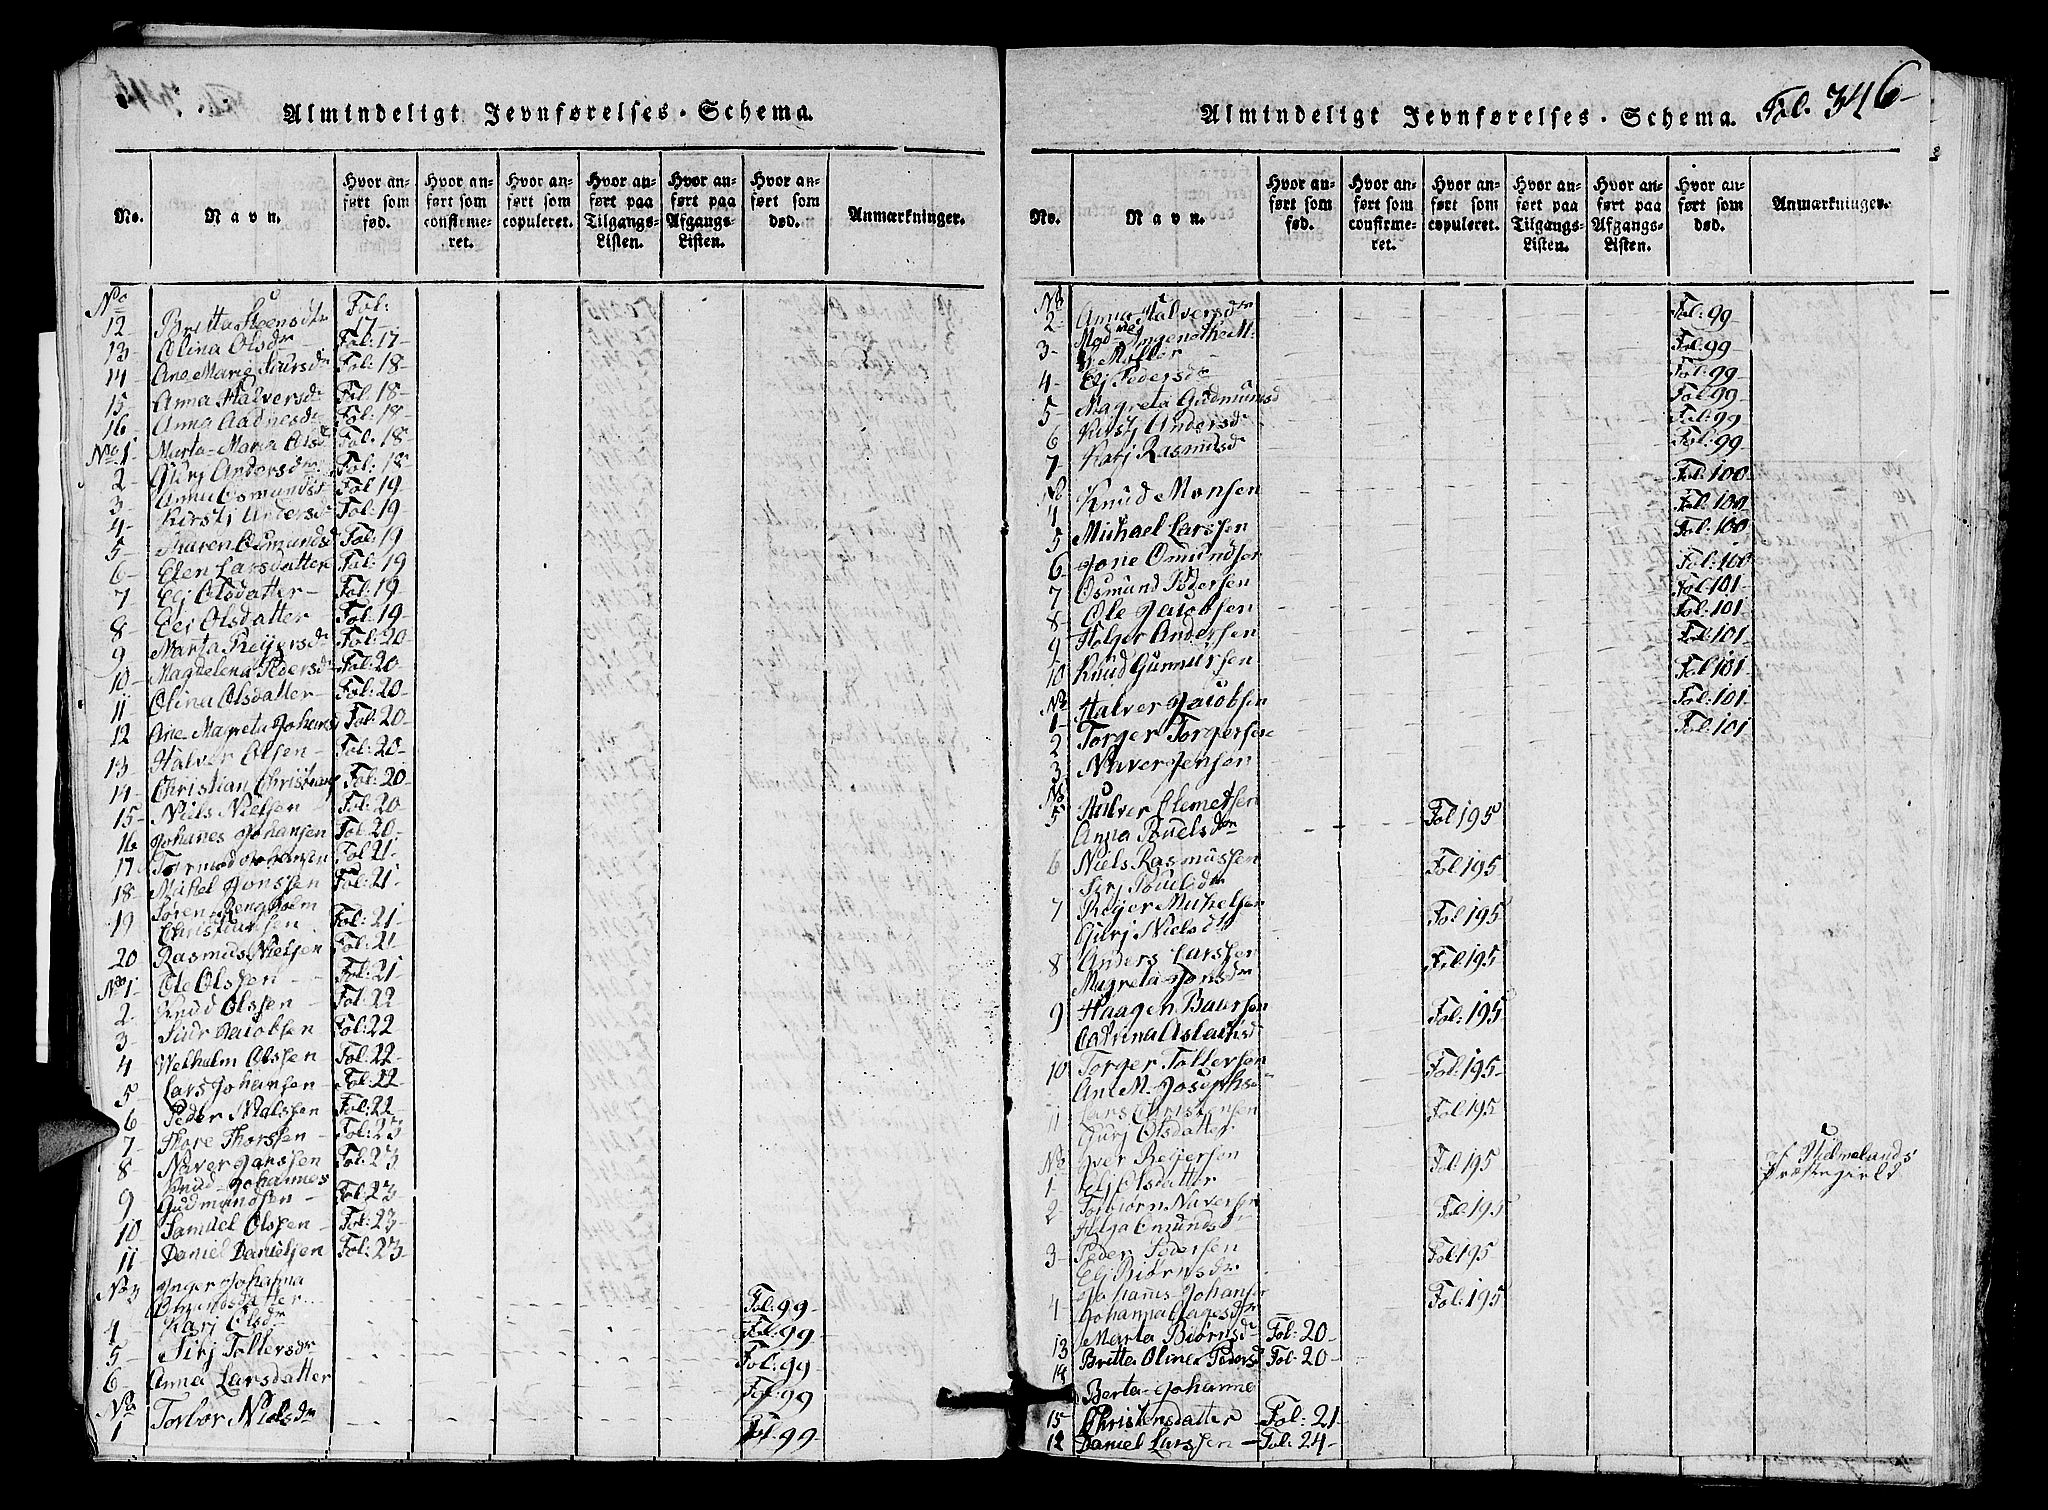 Almindeligt Jevnførelses-Schema.
No.
Navn.
Hvor anført som fød.
Hvor anført som confirmeret.
Hvor anført som copuleret.
Hvor anført paa Tilgangs-Listen.
Hvor anført paa Afgangs-Listen.
Hvor anført som død.
Anmærkninger.
No
12 Fol: 17-
13- Olina Olsdr Fol: 17-
14 Ane Marie Fol: 18-
15 Anna Halversdr Fol. 18-
16- Anna Aadnesdr Fol: 18-
No 1 Marta Maria Olsd Fol. 18-
2- Gurj Andersdr Fol: 18
3- Anna Osmundsd Fol 19
4- Kirstj Andersd Fol: 19-
5- Maren Osmundsd Fol: 19
6- Elen Larsdatter Fol: 19
7 Elj Olsdatter- Fol: 19
8- Eli Olsdatter Fol: 19-
9 Marta Reijersdr Fol: 20
10- Magdelena Pedersdr Fol: 20
11 Olina Olsdatter Fol: 20-
12 Ane Magreta Johans Fol: 20-
13- Halver Olsen- Fol: 20-
14- Christian Fol: 20-
15- Niels Nielsen- Fol: 20
16 Johanes Johansen Fol. 20-
17 Tormod Johansen Fol 21-
18- Mikel Jonssen Fol: 21-
19 Søren Bengholm
Christiansen Fol: 21-
20 Rasmus Nielsen Fol: 21
No 1- Ole Olssen- Fol: 21
2- Knud Olssen- Fol: 22
3- Siur Jacobsen Fol: 22
4 Welhelm Olssen Fol: 22-
5 Lars Johansen Fol: 22
6- Peder Nielssen Fol: 22
7- Thore Thorssen- Fol: 23
8- Naver Janssen Fol: 23
9 Knud Johannes
Gudmundsen- Fol: 23
10 Samuel Olssen- Fol: 23-
11 Daniel Danielsen Fol: 23
No 3 Inger Johanna
Fol: 99-
4 Karj Olsdr Fol: 99-
5- Sirj Tollersdr Fol. 99
6- Anna Larsdatter Fol: 99
No
1 Torbor Nielsdr Fol. 99-
Fol. 346-
Almindeligt Jevnførelses-Schema.
No.
Navn.
Hvor anført som fød.
Hvor anført som confirmeret.
Hvor anført som copuleret.
Hvor anført paa Tilgangs-Listen.
Hvor anført paa Afgangs-Listen.
Hvor anført som død.
Anmærkninger.
No
2- Anna Halversdr Fol: 99
3- Ingenethe M.
Møller Fol: 99
4- Elj Pedersdr Fol: 99
5- Magreta Gudmunsd Fol: 99
6 Kirstj Andersd Fol: 99
7- Karj Rasmusd Fol: 99
No
4 Knud Monsen Fol: 100
5 Michael Larssen Fol: 100
6- Jone Omundsen Fol: 100
7 Osmund Pedersen Fol: 100
8- Ole Jacobsen Fol: 101-
9 Holger Andersen Fol: 101
10 Knud Gunnersen Fol: 101
No
1- Halver Jacobsen Fol: 101
2 Torger Torgersen Fol: 101
3 Naver Jensen Fol: 101
No
5 Halver Clemetsen Fol 195
Anna Pouelsdr
6 Niels Rasmussen Fol: 195
Sirj Pouelsdr
7 Reijer Michelsen Fol 195
Gurj Nielsd
8 Anders Larssen Fol: 195
Magreta Jonsdr
9 Haagen Baursen Fol: 195
Catrina Aslachsd
10 Torger Tollersen Fol: 195-
Ane M. Josephsd
11 Lars Christensen Fol 195
Gurj Olsdatter
No
1 Iver Reijersen Fol: 195
Elj Olsdatter
2- Torbiørn Naversen Fol 195
Helga
3- Peder Pedersen Fol 195
Elj Biørnsdr
4 Johanes Johansen Fol: 195
Johanna
13 Marta Biørnsd Fol: 20-
14 Britte Oline Pedersd Fol. 20-
15- Berta Johanne
Christensdatter Fol: 21-
12 Daniel Larssen- Fol: 24-
af Hielmelands
Præstegield